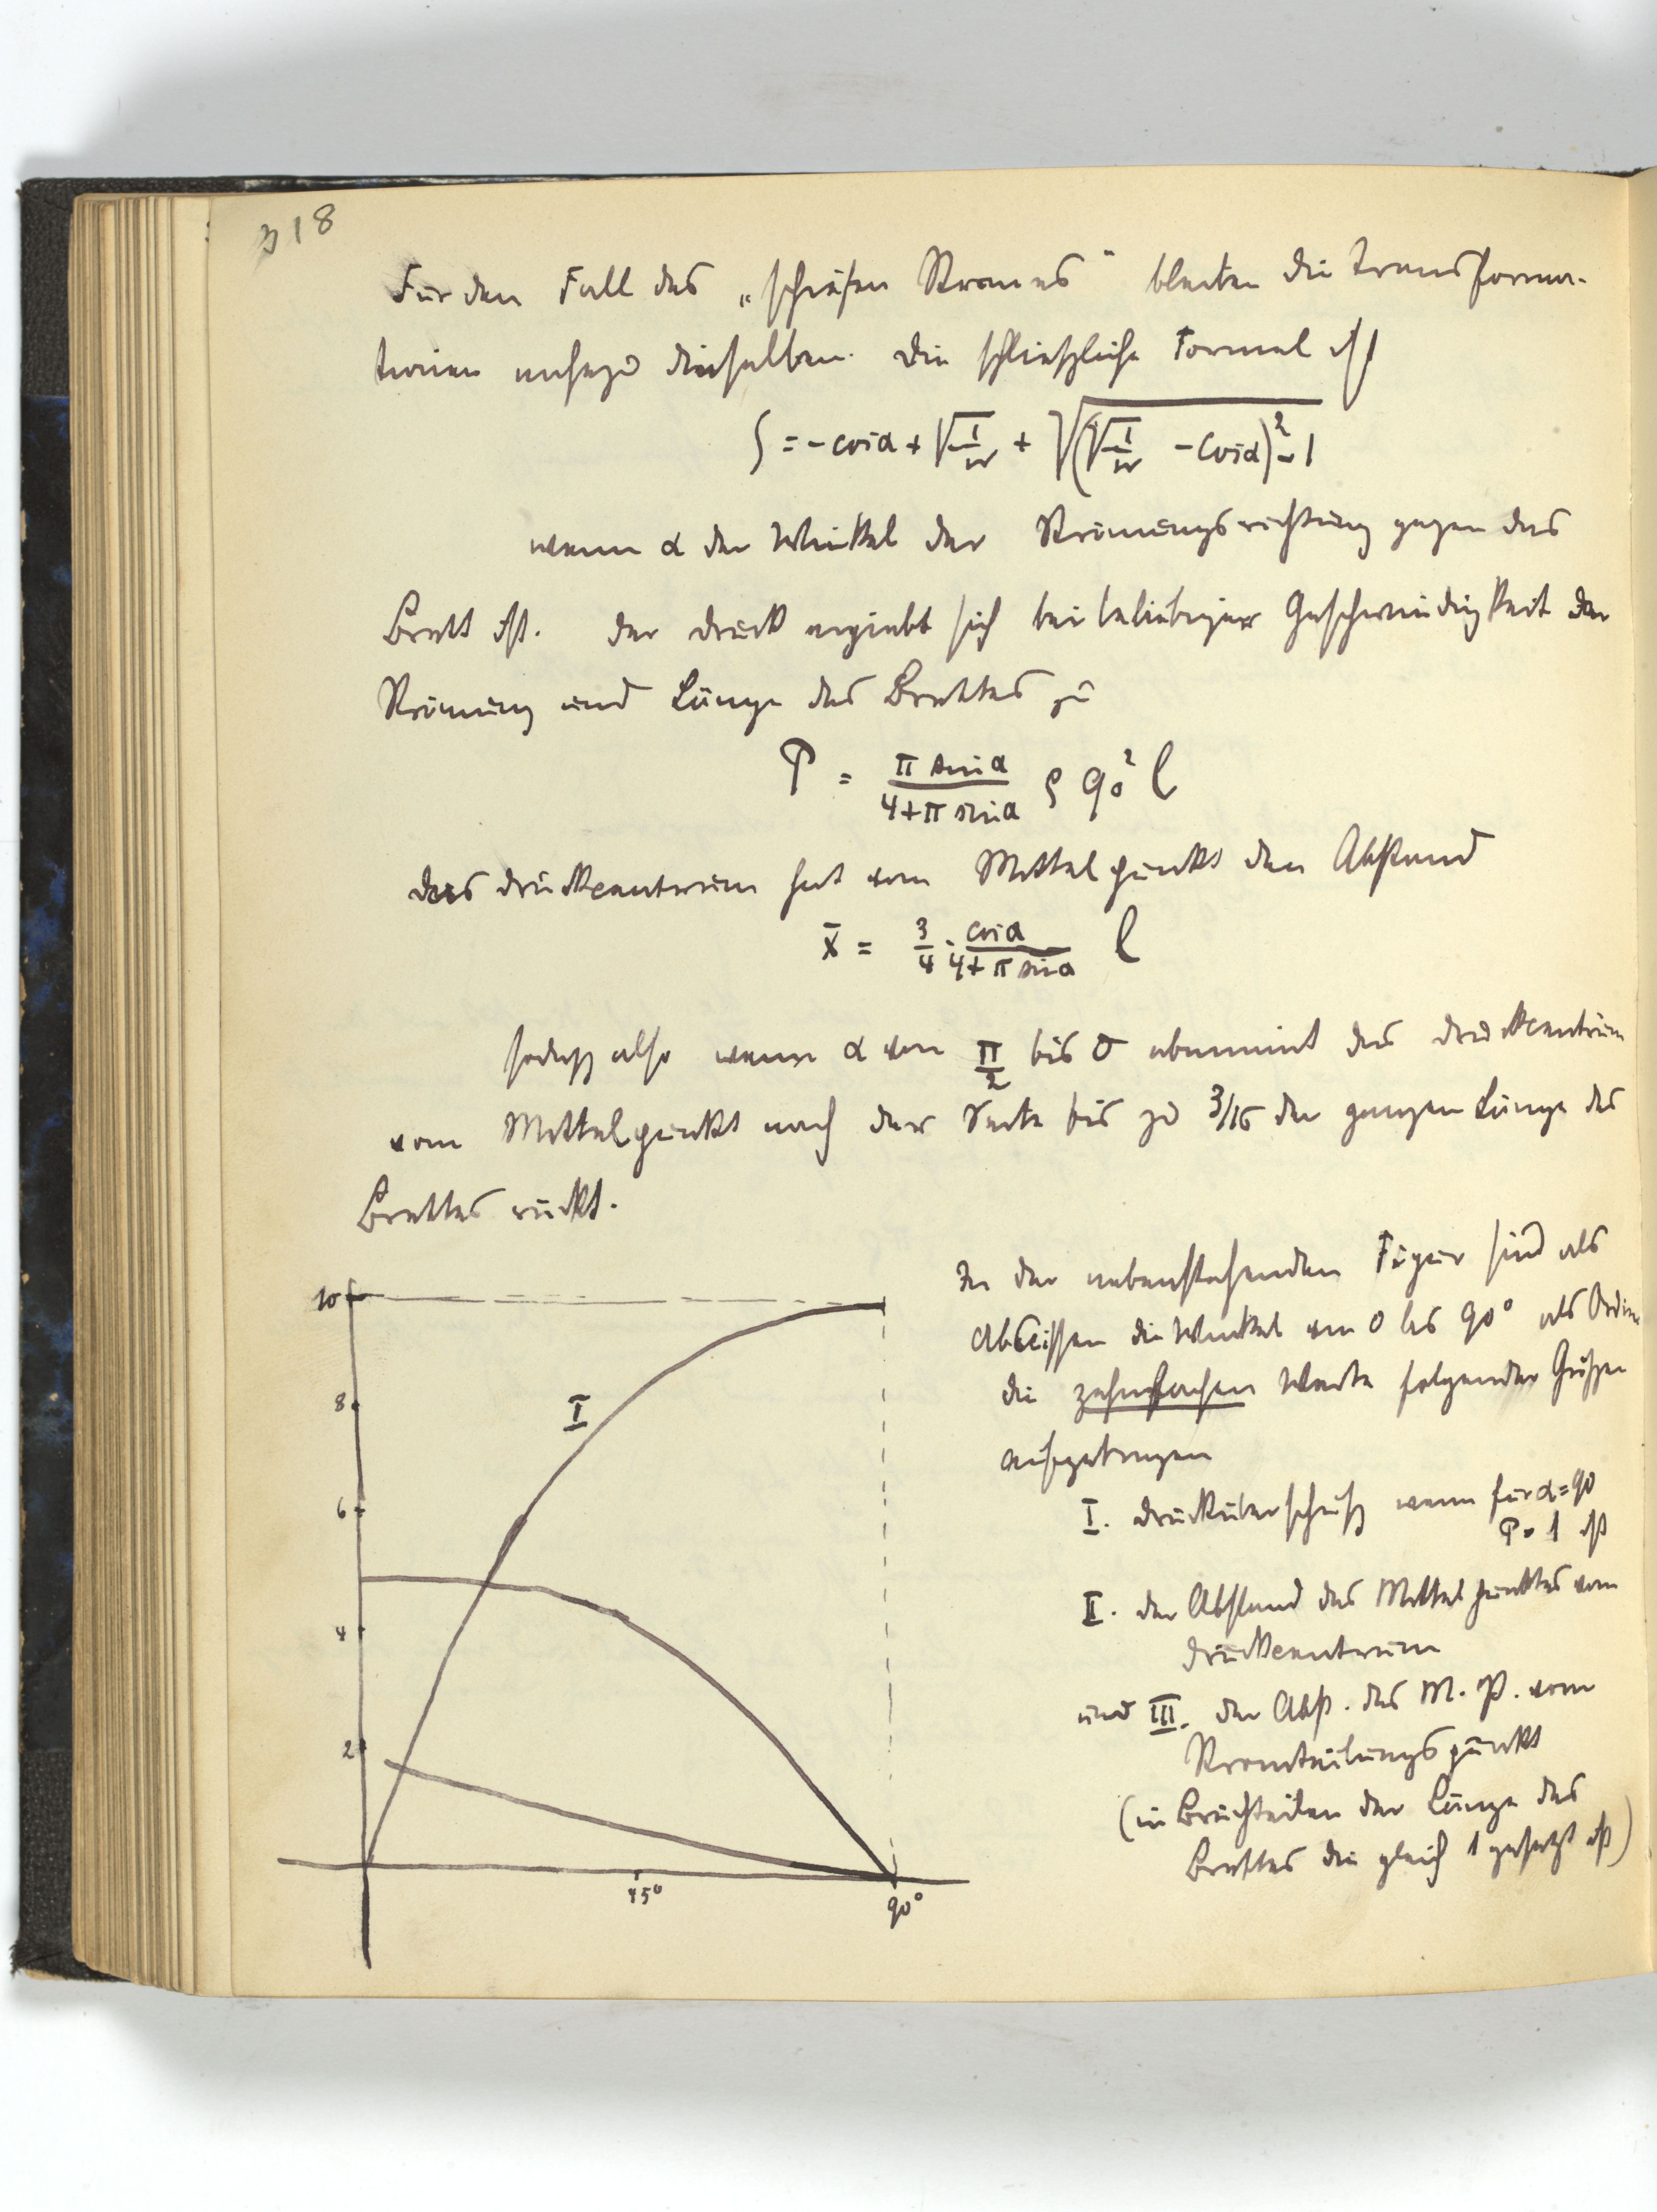 318
Für den Fall des „schiefen Stromes" bleiben die Transforma-
tionen nahezu dieselben. Die schließliche Formel ist
ζ = -cos α + √1/w + √(√1/w - cos α)² - 1
wenn α der Winkel der Strömungsrichtung gegen das
Brett ist. Der Druck ergiebt sich bei beliebiger Geschwindigkeit der
Strömung und Länge des Brettes zu
P = π sin α / 4+π sin α ρ q₀² l
das Druckcentrum hat vom Mittelpunkt den Abstand
x̄ = 3/4 · cos α / 4+π sin α l
sodaß also wenn α von π/2 bis 0 abnimmt das Druckcentrum
vom Mittelpunkt nach der Seite bis zu 3/16 der ganzen Länge des
Brettes rückt.
In der nebenstehenden Figur sind als
Abscissen die Winkel von 0 bis 90° als
die zehnfachen Werte folgender Größen
aufgetragen
I. Drucküberschuß wenn für α=90
P=1 ist
II. der Abstand des Mittelpunktes vom
Druckcentrum
und III. der Abst. des M. P. vom
Stromteilungspunkt
(in Bruchteilen der Länge des
Brettes die gleich 1 gesetzt ist)
10
8
I
6
4
2
45°
90°